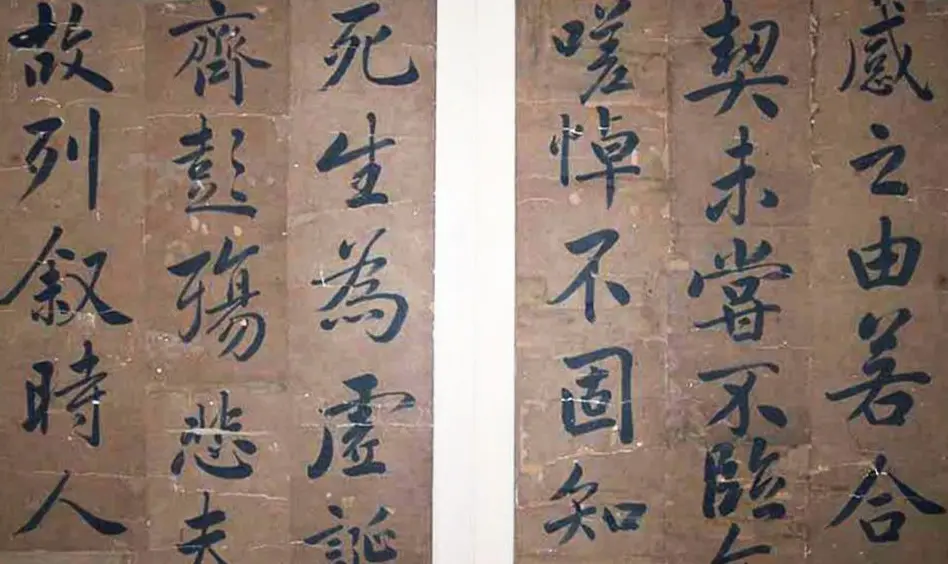 感之由若合
契未嘗不臨今
嗟悼不固知
死生為虛誕
齊彭殤悲夫
故列敘時人